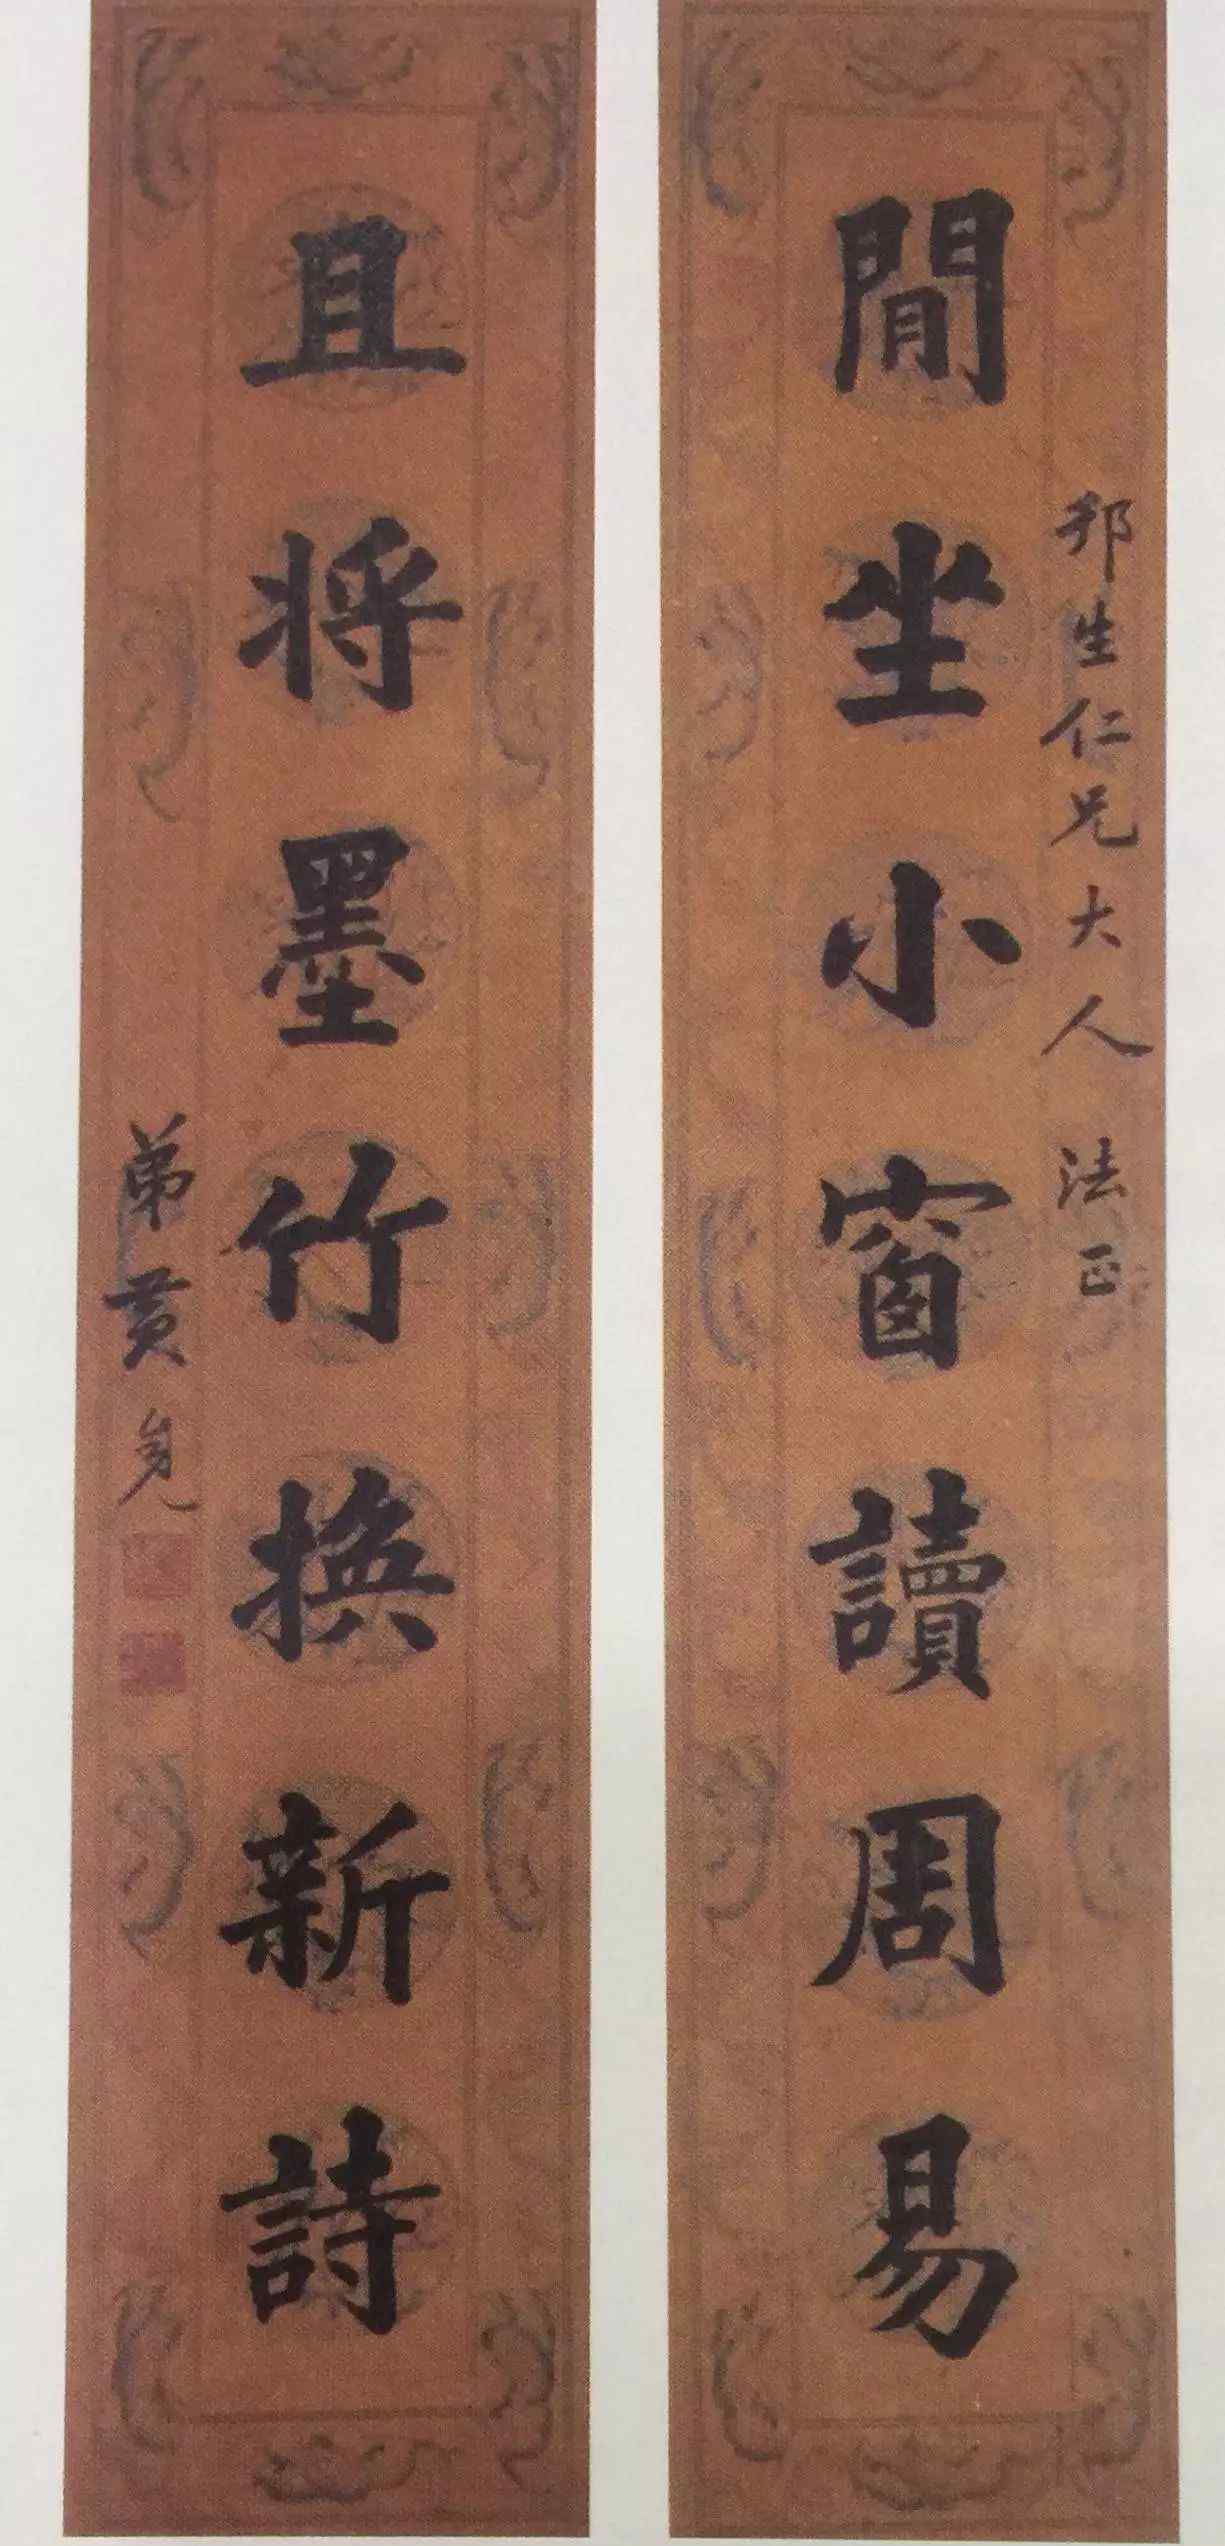 邦生仁兄大人 法正
閒坐小窗讀周易
且將墨竹換新詩
弟黃